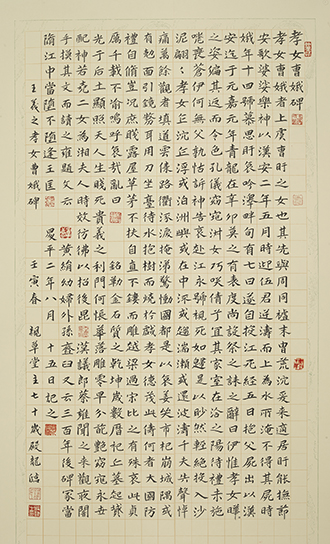 孝女曹娥碑
孝女曹娥者上虞曹盱之女也其先與周同祖末胄荒沉爰來適居盱能撫節
安歌婆娑樂神以漢安二年五月時迎伍君逆濤而上為水所淹不得其屍時
娥年十四號慕思盱哀吟澤畔旬有七日遂自投江死經五日抱父屍出以漢
安迄于元嘉元年青龍在辛卯莫之有表度尚設祭之誄之辭曰伊惟孝女曄
之姿偏其返而令色孔儀窈窕淑女巧咲倩兮宜其家室在洽之陽待禮未施
嗟喪蒼伊何無父孰怙訴神告哀赴江永號視死如歸是以眇然輕絕投入沙
泥翩〻孝女乍沉乍浮或泊洲嶼或在中流或趨湍瀨或還波濤千夫失聲悼
痛萬餘觀者填道雲集路衢泣淚掩涕驚慟國都是以哀姜哭市杞崩城隅或
有剋面引鏡剺耳用刀坐臺待水抱樹而燒於戲孝女德茂此儔何者大國防
禮自脩豈況庶賤露屋草茅不扶自直不鏤而雕越梁過宋比之有殊哀此貞
厲千載不渝嗚呼哀哉亂曰 銘勒金石質之乾坤歲數曆祀丘墓起墳
光于后土顯照天人生賤死貴義之利門何悵華落雕零早分葩艷窈窕永世
配神若堯二女為湘夫人時效彷彿以招後昆 漢議郎蔡雍聞之來觀夜闇
手摸其文而讀之雍題文云 黃絹幼婦外孫齏臼又云三百年後碑冢當
墮江中當墮不墮逢王匡 昇平二年八月十五日記之
王羲之孝女曹娥碑 壬寅春 硯草堂主七十歲殷龍